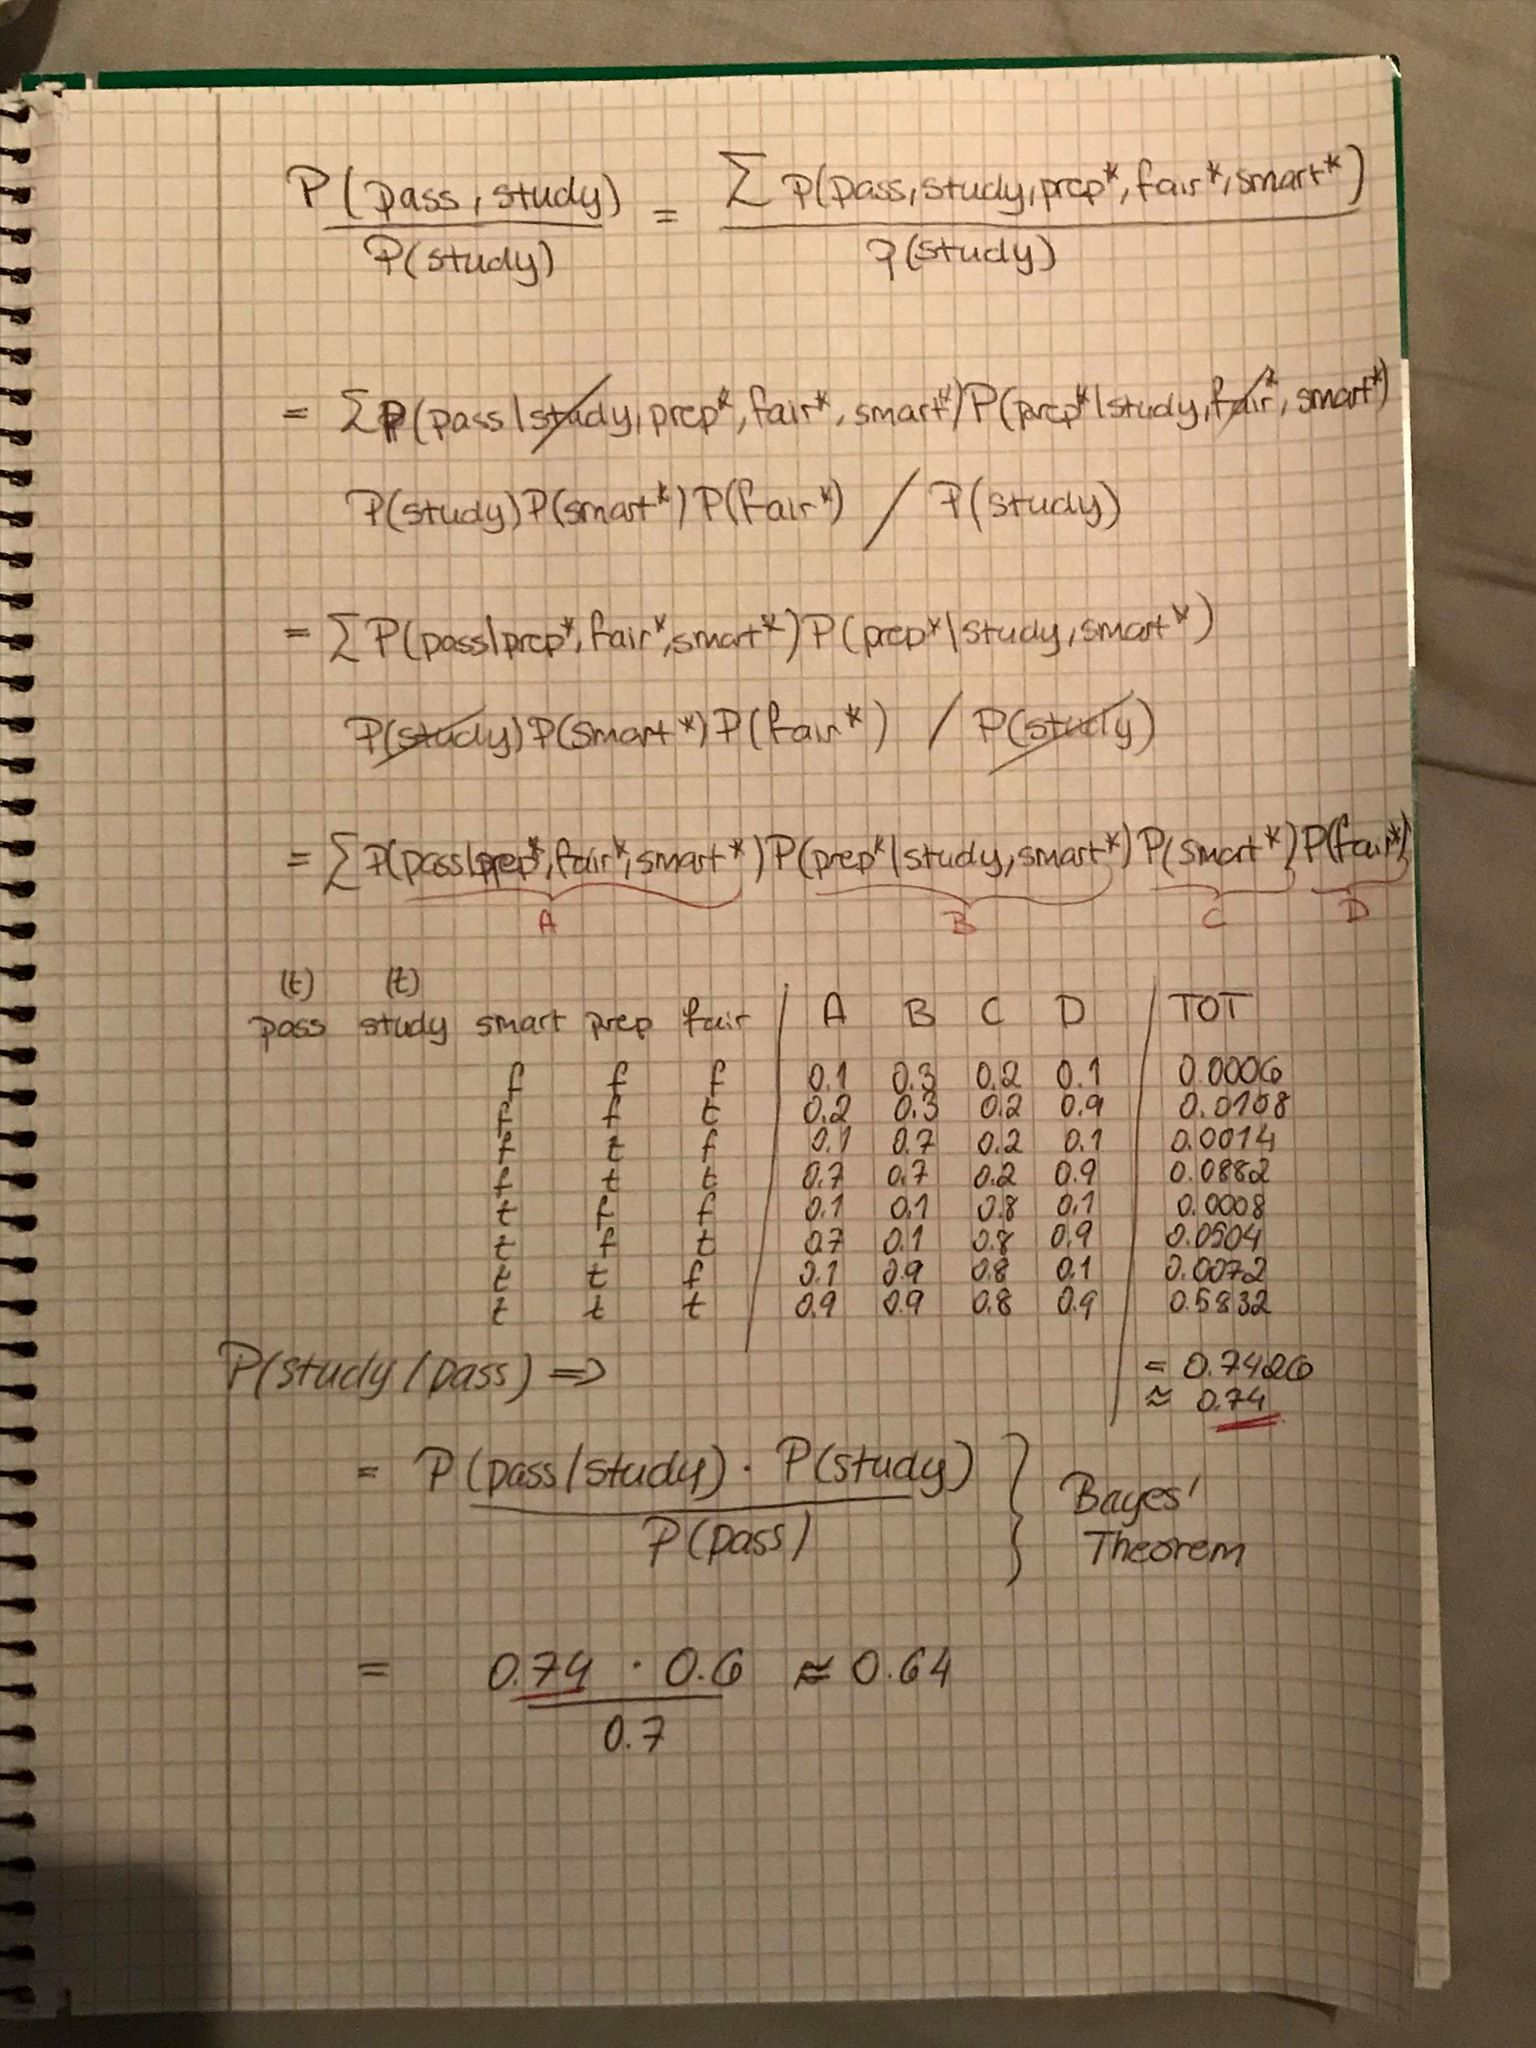 P(pass, study) / P(study) = Σ P(pass, study, prep*, fair*, smart*) / P(study)
= Σ P(pass | study, prep*, fair*, smart*) P(prep* | study, fair*, smart*)
P(study) P(smart*) P(fair*) / P(study)
= Σ P(pass | prep*, fair*, smart*) P(prep* | study, smart*)
P(study) P(smart*) P(fair*) / P(study)
= Σ P(pass | prep*, fair*, smart*) P(prep* | study, smart*) P(smart*) P(fair*)
A B C D
(t) (t)
pass study smart prep fair A B C D TOT
f f f 0.1 0.3 0.2 0.1 0.0006
f f t 0.2 0.3 0.2 0.9 0.0108
f t f 0.1 0.7 0.2 0.1 0.0014
f t t 0.7 0.7 0.2 0.9 0.0882
t f f 0.1 0.1 0.8 0.1 0.0008
t f t 0.7 0.1 0.8 0.9 0.0504
t t f 0.1 0.9 0.8 0.1 0.0072
t t t 0.9 0.9 0.8 0.9 0.5832
P(study / pass) =>
= 0.7426
≈ 0.74
= P(pass / study) · P(study) / P(pass) } Bayes' Theorem
= 0.74 · 0.6 / 0.7 ≈ 0.64